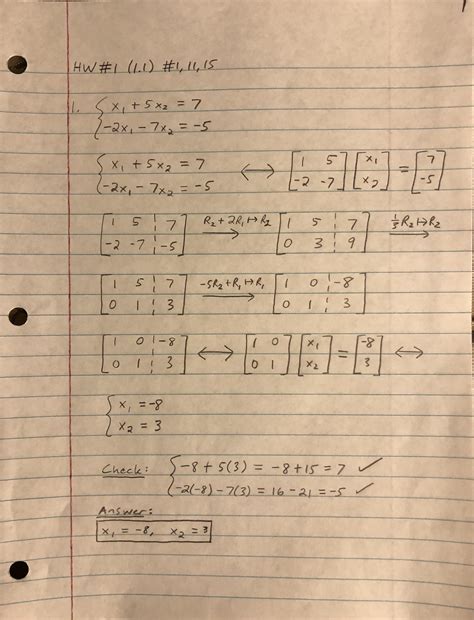 HW #1 (1.1) #1, 11, 15
1. { x₁ + 5x₂ = 7
-2x₁ - 7x₂ = -5
{ x₁ + 5x₂ = 7
-2x₁ - 7x₂ = -5 ⟷ [1 5; -2 -7] [x₁; x₂] = [7; -5]
[1 5 ¦ 7; -2 -7 ¦ -5] R₂ + 2R₁ ↦ R₂ → [1 5 ¦ 7; 0 3 ¦ 9] ⅓R₂ ↦ R₂ →
[1 5 ¦ 7; 0 1 ¦ 3] -5R₂ + R₁ ↦ R₁ → [1 0 ¦ -8; 0 1 ¦ 3]
[1 0 ¦ -8; 0 1 ¦ 3] ⟷ [1 0; 0 1] [x₁; x₂] = [-8; 3] ⟷
{ x₁ = -8
x₂ = 3
Check: { -8 + 5(3) = -8 + 15 = 7 ✓
-2(-8) - 7(3) = 16 - 21 = -5 ✓
Answer:
x₁ = -8, x₂ = 3